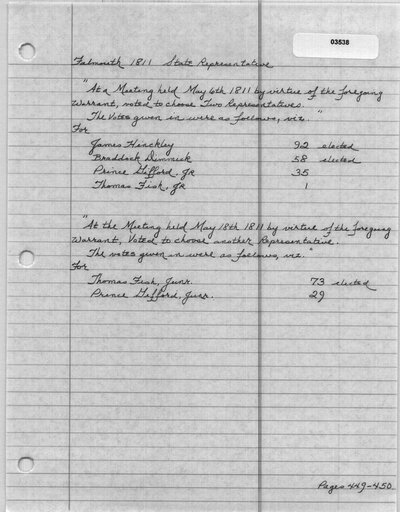 03538
Falmouth 1811 State Representative
"At a Meeting held May 6th 1811 by virtue of the foregoing
Warrant, voted to choose Two Representatives.
The Votes given in were as follows, viz."
For
James Hinckley 92 elected
Braddock Dimmick 58 elected
Prince Gifford, Jr 35
Thomas Fish, Jr 1
"At the Meeting held May 18th 1811 by virtue of the foregoing
Warrant, Voted to choose another Representative.
The votes given in were as follows, viz."
For
Thomas Fish, Junr. 73 elected
Prince Gifford, Junr. 29
Pages 449-450